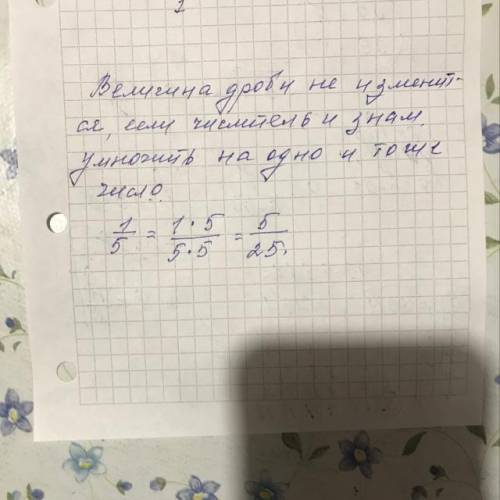 1
Величина дроби не изменит-
ся, если числитель и знам.
умножить на одно и тоже
число.
1/5 = 1·5/5·5 = 5/25.